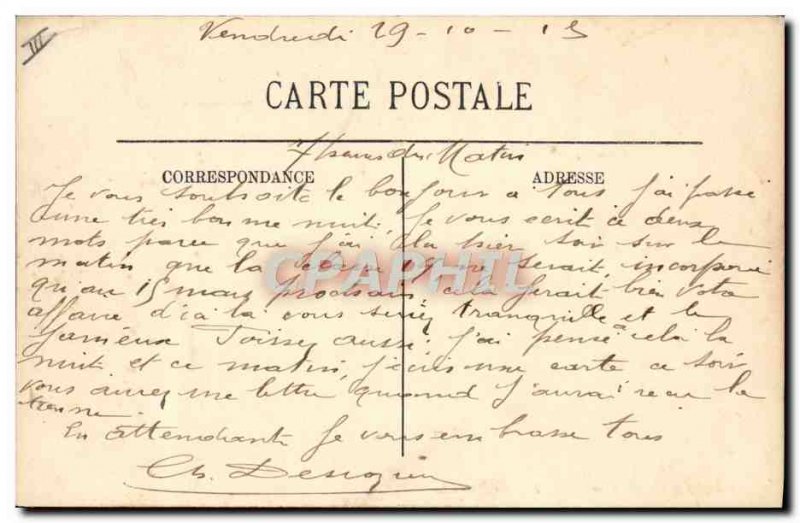 III
Vendredi 29-10-15
CARTE POSTALE
7 heures du Matin
CORRESPONDANCE
ADRESSE
Je vous souhaite le bonjour a tous j'ai passé
une très bonne nuit, Je vous ecrit ce deux
mots parce que j'ai lu hier soir sur le
matin que la classe serait incorporé
qu'au 15 mars prochain, ça ferait bien vota
affaire d'ici la vous seriez tranquille et le
fameux Toissey aussi, j'ai pensé a cela la
nuit et ce matin, j'ecris une carte ce soir
vous aurez une lettre quand j'aurai reçu la
tienne.
En attendant Je vous embrasse tous
Ch.
CPAPHIL